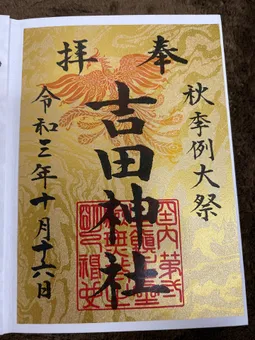 奉拝
秋季例大祭
吉田神社
令和三年十月十六日